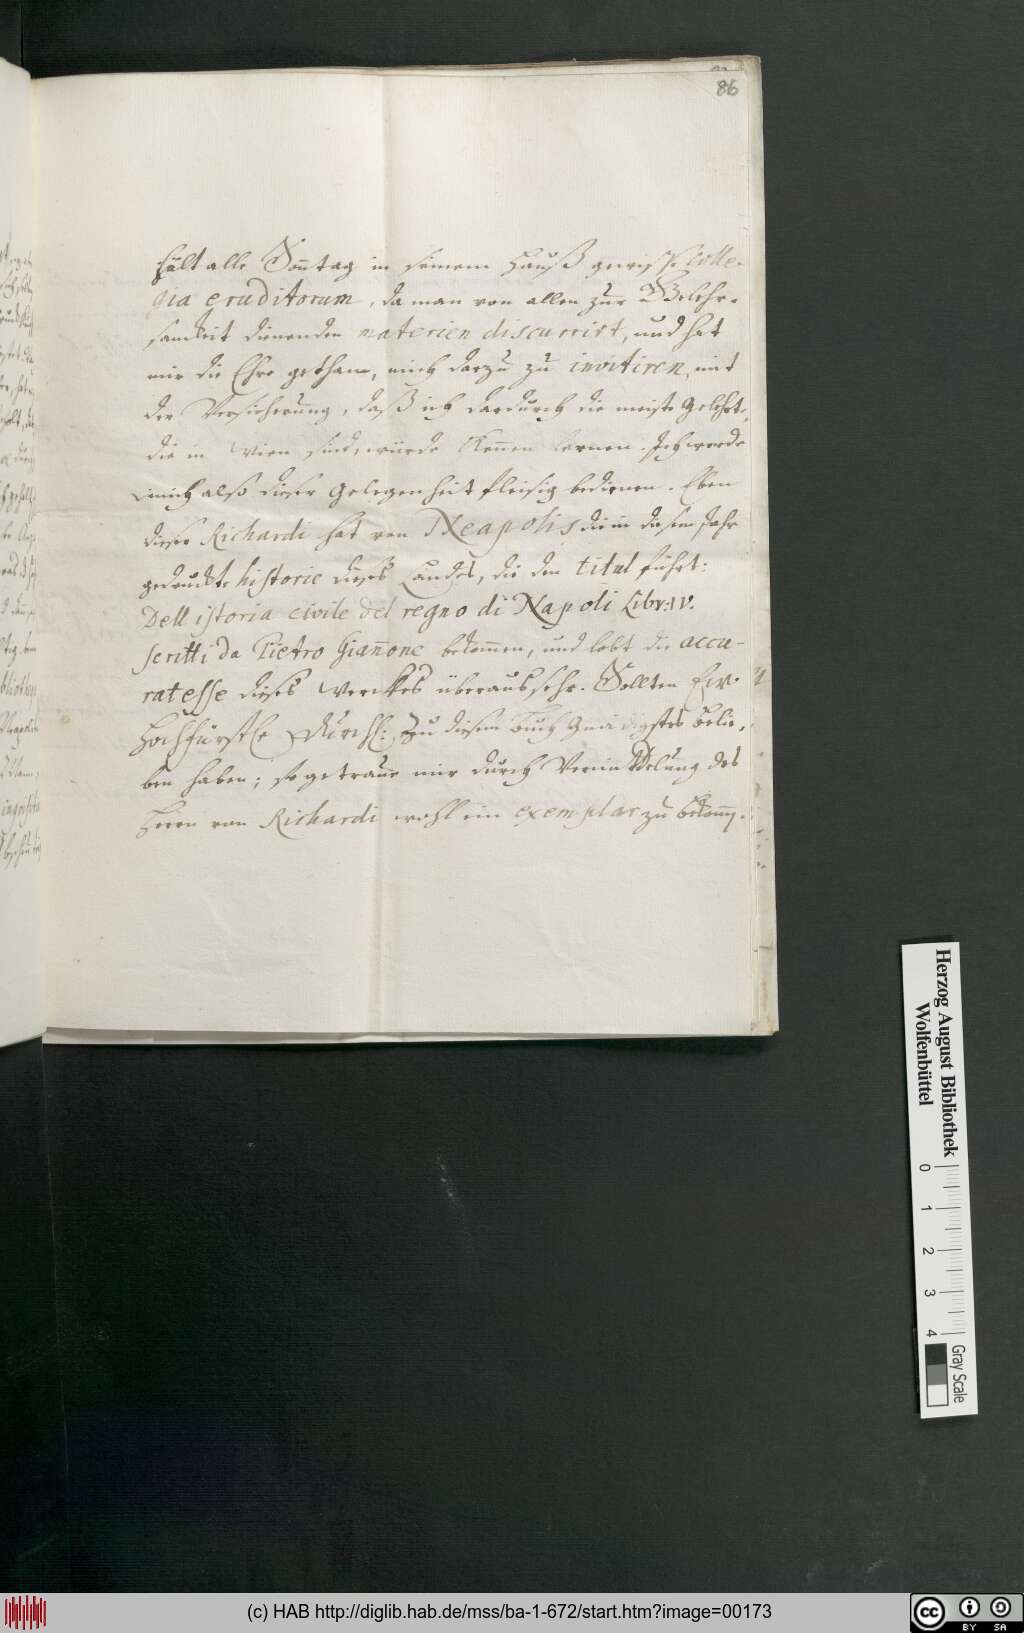 86
hält alle Sonntag in seinem Hauß gewisse Colle-
gia eruditorum, da man von allen zur Gelehr-
samkeit dienenden materien discurrirt, und hat
mir die Ehre gethan, mich darzu zu invitiren, mit
der Versicherung, daß ich dardurch die meiste Gelehrte,
die in Wien sind, würde kennen lernen. Ich werde
mich alß dieser Gelegenheit fleisig bedienen. Eben
dieser Richardi hat von Neapolis die in diesem Jahr
gedruckte historie dieses Landes, die den titul führt:
Dell istoria civile del regno di Napoli Libr: IV.
scritti da Pietro Giannone bekomen, und lobt die accu-
ratesse dieses Werckes überaus sehr. Sollten Ew.
Hochfürstle Durchl: zu diesem Buch Gnädigstes Belie-
ben haben; so getraue mir durch Vermittelung des
Herrn von Richardi wohl ein exemplar zu bekomm.
Herzog August Bibliothek
Wolfenbüttel
0 1 2 3 4
Gray Scale
(c) HAB http://diglib.hab.de/mss/ba-1-672/start.htm?image=00173
cc BY SA